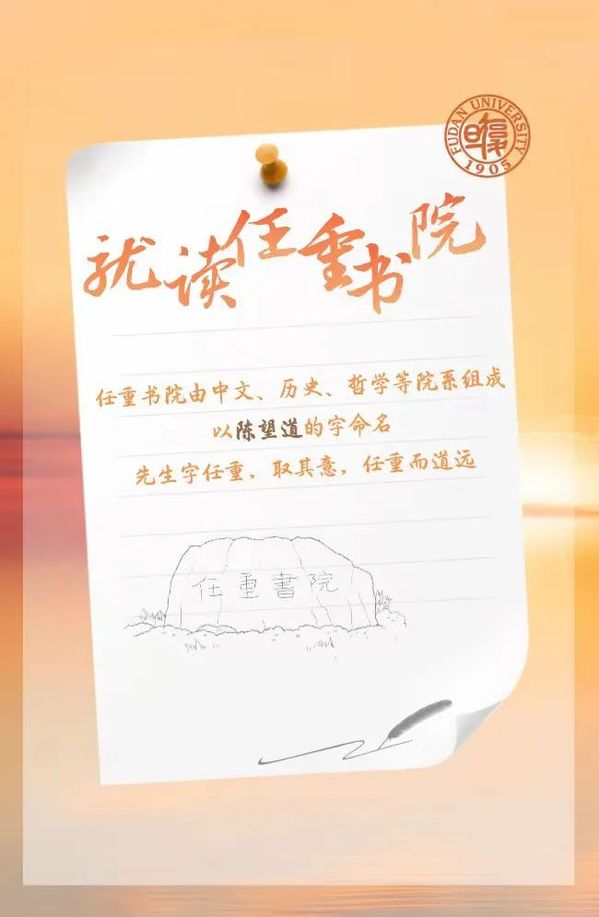 FUDAN UNIVERSITY
復旦
1905
就读任重书院
任重书院由中文、历史、哲学等院系组成
以陈望道的字命名
先生字任重，取其意，任重而道远
任重書院